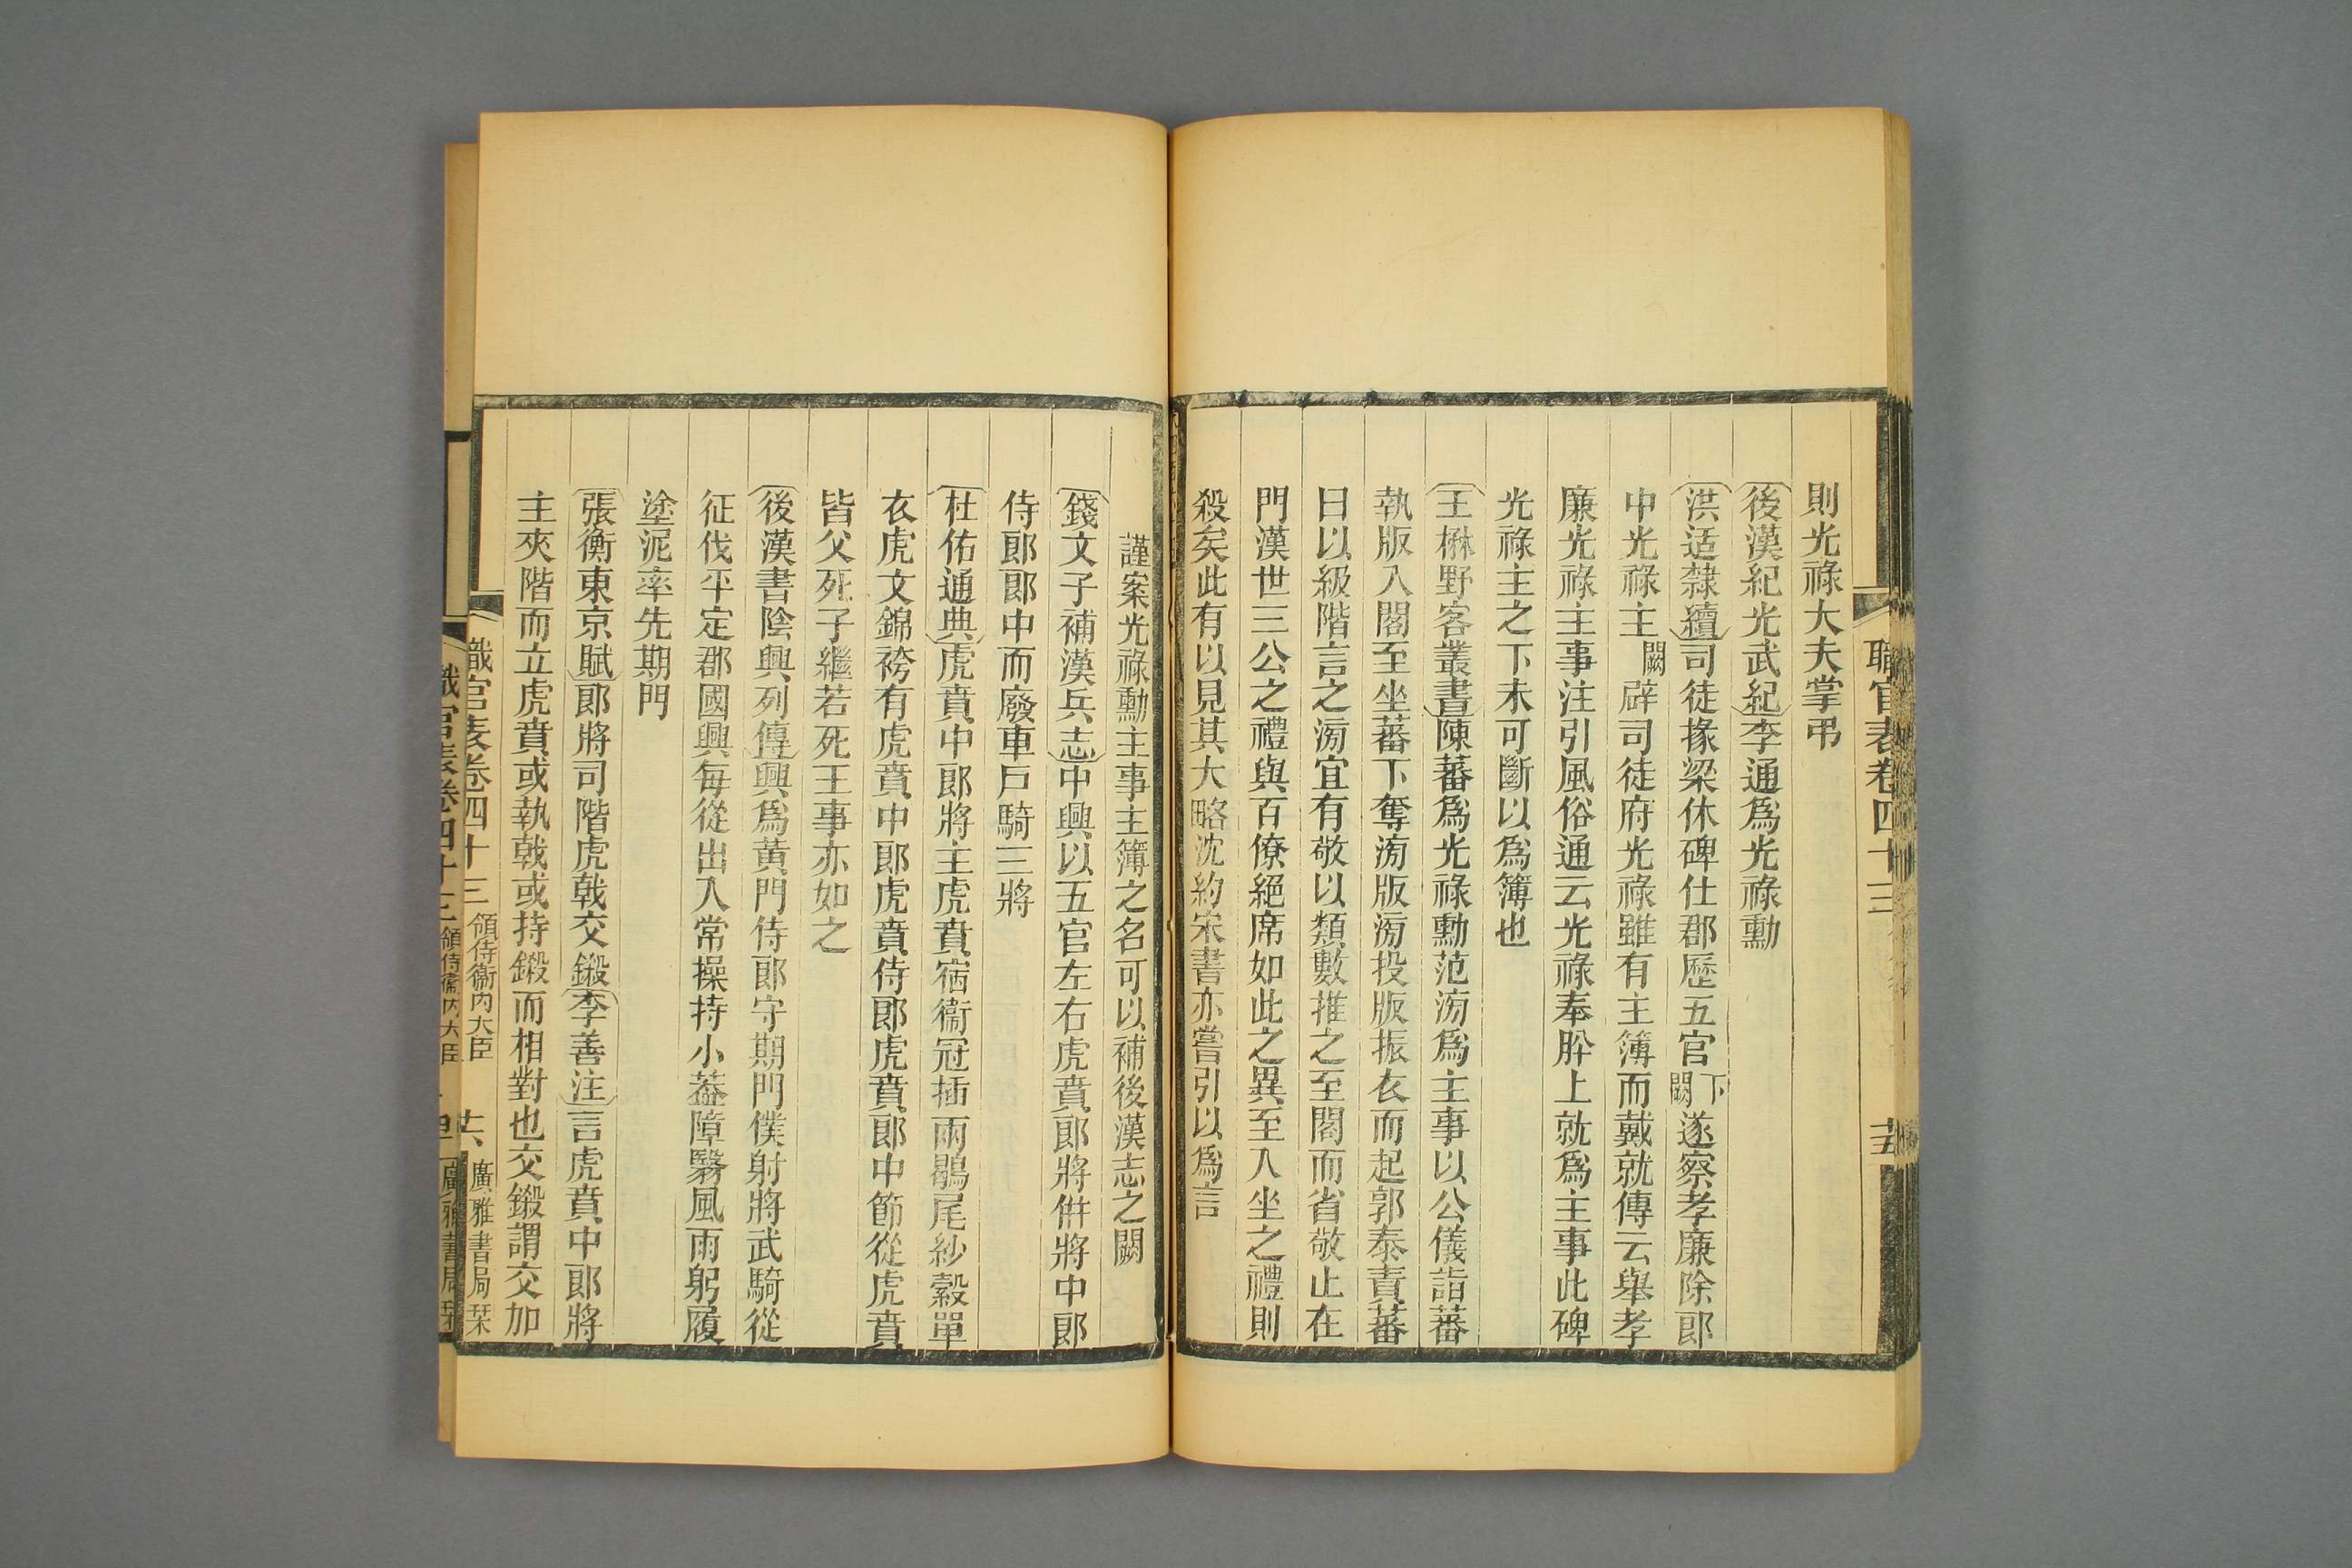 職官表卷四十三
則光祿大夫掌弔
後漢紀光武紀李通爲光祿勳
洪适隸續司徒掾梁休碑仕郡歷五官下闕遂察孝廉除郎
中光祿主闕辟司徒府光祿雖有主簿而戴就傳云舉孝
廉光祿主事注引風俗通云光祿奉肸上就爲主事此碑
光祿主之下未可斷以爲簿也
王楙野客叢書陳蕃爲光祿勳范滂爲主事以公儀詣蕃
執版入閣至坐蕃下奪滂版滂投版振衣而起郭泰責蕃
曰以級階言之滂宜有敬以類數推之至閣而省敬止在
門漢世三公之禮與百僚絕席如此之異至入坐之禮則
殺矣此有以見其大略沈約宋書亦嘗引以爲言
謹案光祿勳主事主簿之名可以補後漢志之闕
錢文子補漢兵志中興以五官左右虎賁郎將倂將中郎
侍郎郎中而廢車戶騎三將
杜佑通典虎賁中郎將主虎賁宿衞冠插兩鶡尾紗縠單
衣虎文錦袴有虎賁中郎虎賁侍郎虎賁郎中節從虎賁
皆父死子繼若死王事亦如之
後漢書陰興列傳興爲黃門侍郎守期門僕射將武騎從
征伐平定郡國興每從出入常操持小葢障翳風雨躬履
塗泥率先期門
張衡東京賦郎將司階虎戟交鎩李善注言虎賁中郎將
主夾階而立虎賁或執戟或持鎩而相對也交鎩謂交加
職官表卷四十三 領侍衞內大臣 六 廣雅書局栞